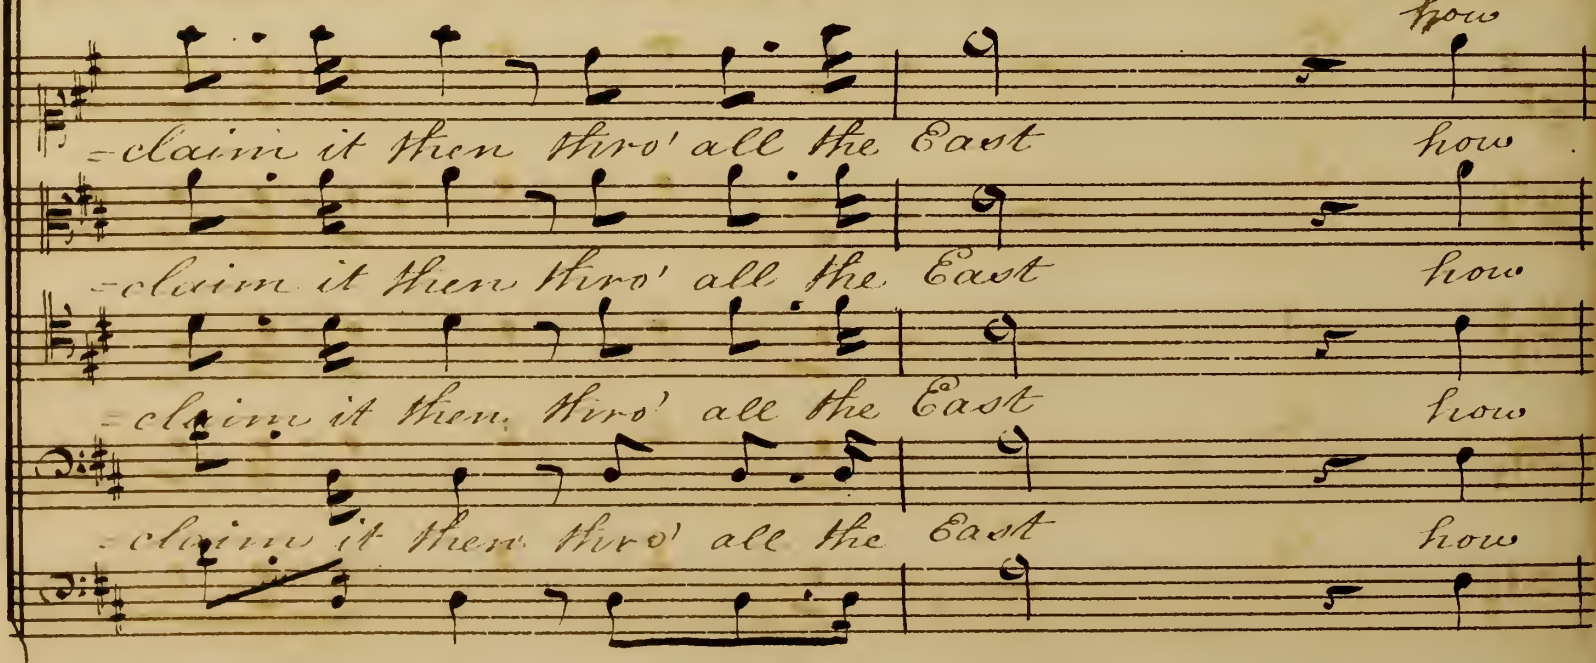 how
=claim it then thro' all the East how
=claim it then thro' all the East how
=claim it then thro' all the East how
=claim it then thro' all the East how